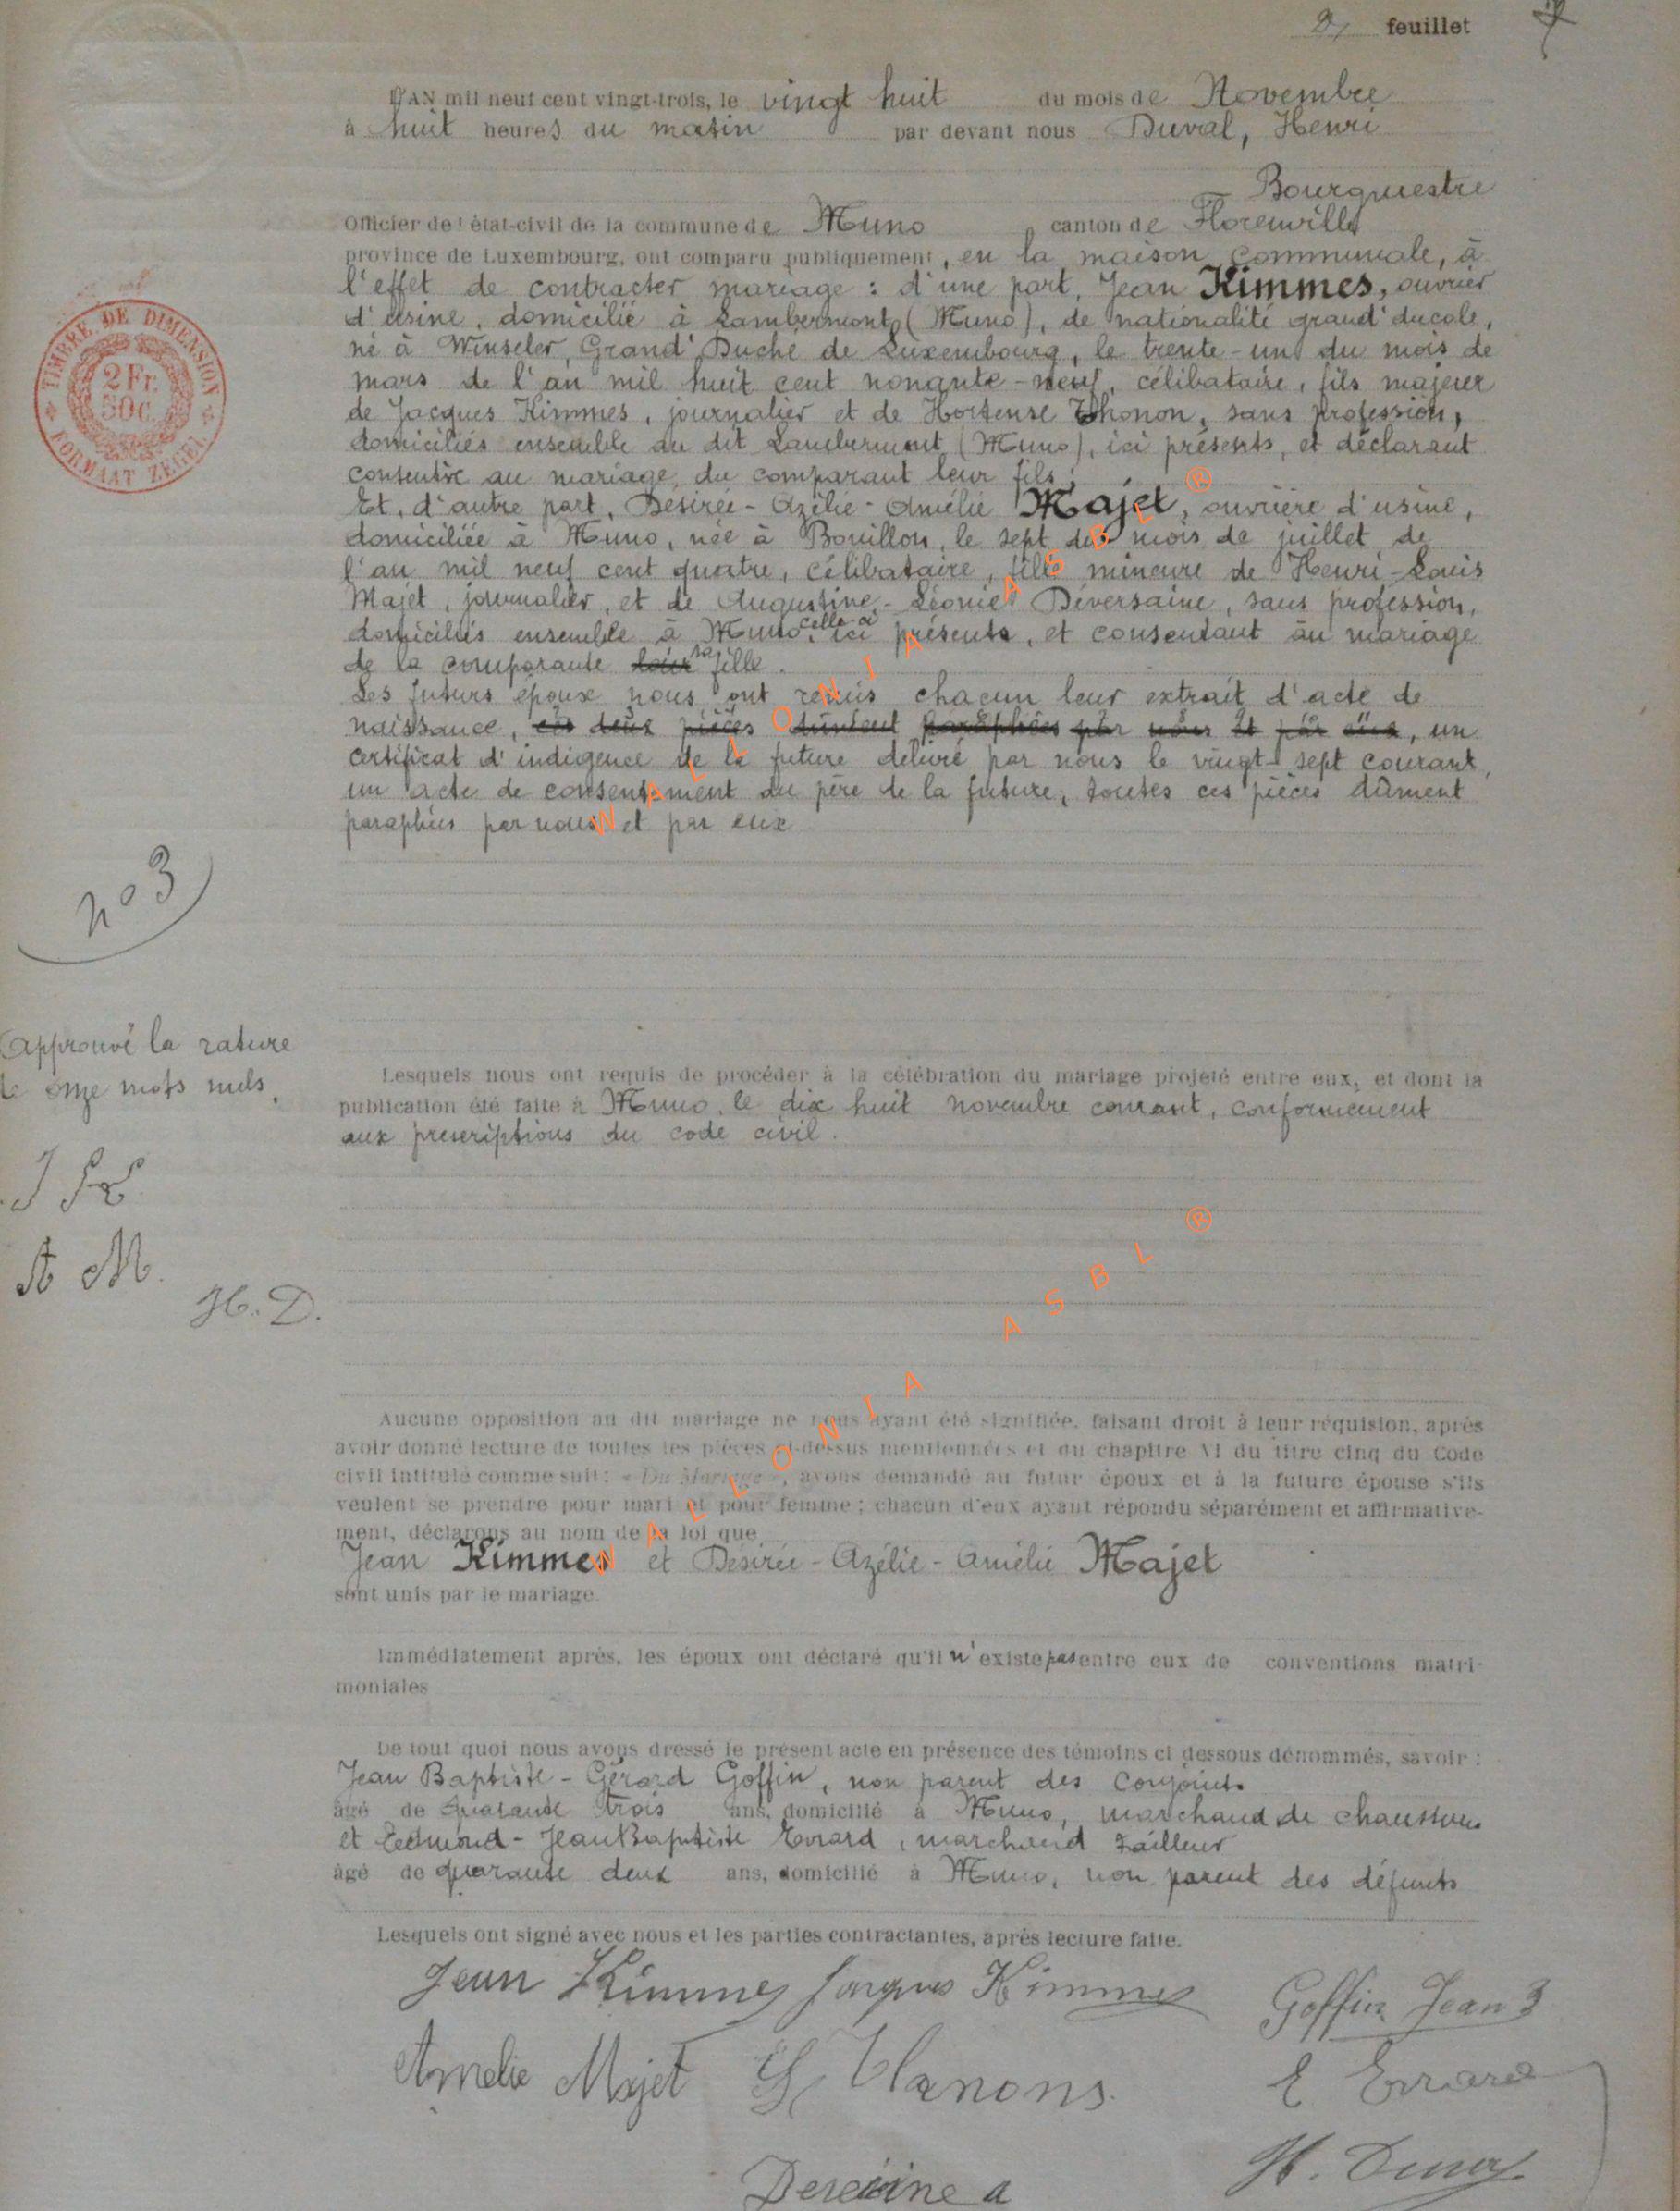 feuillet
L'AN mil neuf cent vingt-trois, le vingt huit du mois de Novembre
à huit heures du matin par devant nous Duval, Henri
Bourgmestre
Officier de l'état-civil de la commune de Muno canton de Florenville
province de Luxembourg, ont comparu publiquement, en la maison communale, à
l'effet de contracter mariage : d'une part, Jean Kimmes, ouvrier
d'usine, domicilié à Lambermont (Muno), de nationalité grand'ducale,
né à Winseler, Grand'Duché de Luxembourg, le trente-un du mois de
mars de l'an mil huit cent nonante-neuf, célibataire, fils majeur
de Jacques Kimmes, journalier et de Hortense Thonon, sans profession,
domiciliés ensemble au dit Lambermont (Muno), ici présents, et déclarant
consentir au mariage du comparant leur fils;
Et, d'autre part, Désirée-Azélie-Amélie Majet, ouvrière d'usine,
domiciliée à Muno, née à Bouillon, le sept du mois de juillet de
l'an mil neuf cent quatre, célibataire, fille mineure de Henri-Louis
Majet, journalier, et de Augustine-Léonie Deversaine, sans profession,
domiciliés ensemble à Muno, celle ci ici présente, et consentant au mariage
de la comparante leur sa fille.
Les futurs époux nous ont remis chacun leur extrait d'acte de
naissance, ces deux pièces dûment paraphées par nous et par eux, un
certificat d'indigence de la future délivré par nous le vingt-sept courant,
un acte de consentement du père de la future, toutes ces pièces dûment
paraphées par nous et par eux
n° 3
approuvé la rature
de onze mots nuls.
J K
A M.
H. D.
Lesquels nous ont requis de procéder à la célébration du mariage projeté entre eux, et dont la
publication été faite à Muno, le dix huit novembre courant, conformément
aux prescriptions du code civil.
Aucune opposition au dit mariage ne nous ayant été signifiée, faisant droit à leur réquision, après
avoir donné lecture de toutes les pièces ci-dessus mentionnées et du chapitre VI du titre cinq du Code
civil intitulé comme suit: « Du Mariage », avons demandé au futur époux et à la future épouse s'ils
veulent se prendre pour mari et pour femme; chacun d'eux ayant répondu séparément et affirmative-
ment, déclarons au nom de la loi que
Jean Kimmes et Désirée-Azélie-Amélie Majet
sont unis par le mariage.
Immédiatement après, les époux ont déclaré qu'il n'existe pas entre eux de conventions matri-
moniales
De tout quoi nous avons dressé le présent acte en présence des témoins ci dessous dénommés, savoir :
Jean Baptiste-Gérard Goffin, non parent des conjoints
âgé de quarante trois ans, domicilié à Muno, marchand de chaussures
et Edmond-Jean Baptiste Evrard, marchand tailleur
âgé de quarante deux ans, domicilié à Muno, non parent des défunts
Lesquels ont signé avec nous et les parties contractantes, après lecture faite.
Jean Kimmes Jacques Kimmes Goffin Jean B
Amelie Majet Thanons. E Evrard
H. Duval
TIMBRE DE DIMENSION
2 Fr.
50 C.
FORMAAT ZEGEL
WALLONIA ASBL ®
WALLONIA ASBL ®